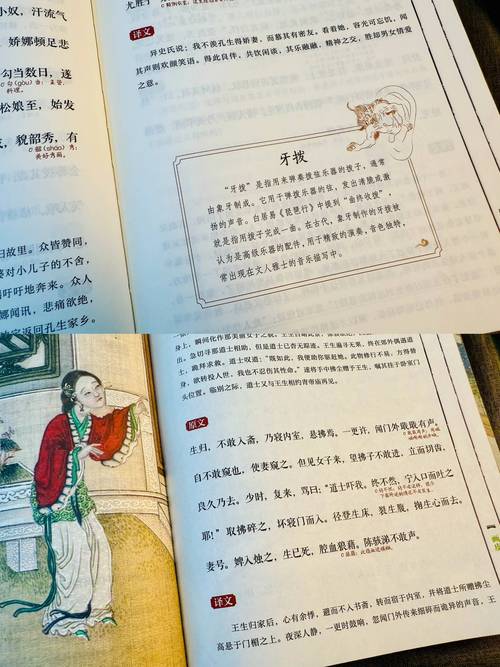 小奴，汗流气
娇娜顿足悲
勾当数日，遂
勾（gòu）当：主管，
料理。
松娘至，始发
，貌韶秀，有
韶（sháo）秀：
美好秀丽。
日故里。众皆赞同，
婆对小儿子的不舍，
吁吁地奔来。众人
娜闻讯，悲痛欲绝，
译文
异史氏说；我不羡孔生得娇妻，而慕其有密友。看着她，容光可忘饥，闻
其声则欢颜笑语。得此良伴，共饮闲谈，其乐融融，精神之交，胜却男女情爱
之意。
牙拨
“牙拨”是指用来弹奏拨弦乐器的拨子，通常
由象牙制成。它用于弹拨乐器的弦，发出清脆或激
扬的声音。白居易《琵琶行》中提到“曲终收拨”，
就是指用拨子完成一曲。在古代，象牙制作的牙拨被
认为是高级乐器的配件，用于精致的演奏，音色独特，
常出现在文人雅士的音乐描写中。
出，急切寻那道士相助，但是道士已杳无踪迹。王生遍寻无果，终在郊外偶遇道
士，跪拜求救。道士叹道：“既如此，我便助你驱赶她。此物修行不易，方得替
身，欲转投人世，我也不忍伤其性命。”遂将手中拂尘赠予王生，嘱其挂于卧室门
头位置。临别之际，道士又与王生相约青帝庙再见。
原文
生归，不敢入斋，乃寝内室，悬拂焉，一更许，闻门外戢戢有声，
自不敢窥也，使妻窥之。但见女子来，望拂子不敢进，立而切齿，
良久乃去。少时，复来，骂曰：“道士吓我。终不然，宁入口而吐之
耶！”取拂碎之，坏寝门而入。径登生床，裂生腹，掬生心而去。
妻号。婢入烛之，生已死，腔血狼藉。陈骇涕不敢声。
译文
王生归家后，心有余悸，避而不入书斋，转而宿于内室，并将道士所赠拂尘
高悬于门楣之上。夜深人静，一更时鼓响，忽闻门外传来细碎而诡异的声音，王